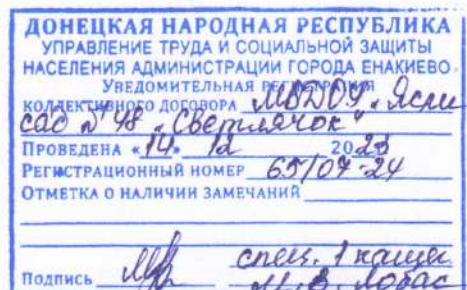 ДОНЕЦКАЯ НАРОДНАЯ РЕСПУБЛИКА
УПРАВЛЕНИЕ ТРУДА И СОЦИАЛЬНОЙ ЗАЩИТЫ
НАСЕЛЕНИЯ АДМИНИСТРАЦИИ ГОРОДА ЕНАКИЕВО
УВЕДОМИТЕЛЬНАЯ РЕГИСТРАЦИЯ
КОЛЛЕКТИВНОГО ДОГОВОРА МБДОУ "Ясли
сад №48 "Светлячок"
ПРОВЕДЕНА «14» 12 2023
РЕГИСТРАЦИОННЫЙ НОМЕР 65/07-24
ОТМЕТКА О НАЛИЧИИ ЗАМЕЧАНИЙ
спец. 1 катег
ПОДПИСЬ М.В. Лобас